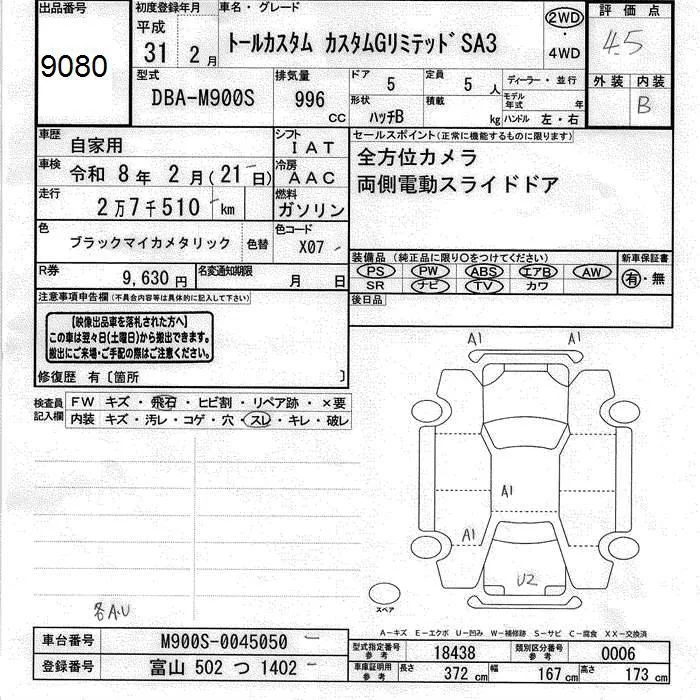 出品番号
9080
初度登録年月
平成
31 2月
車名・グレード
トールカスタム カスタムGリミテッド SA3
2WD
・
4WD
評価点
4.5
外装 内装
B
型式
DBA-M900S
排気量
996
CC
ドア 5
定員 5 人
ディーラー・並行
モデル年式 年
形状
ハッチB
積載 kg
ハンドル 左・右
車歴 自家用
シフト IAT
車検 令和 8年 2月(21日)
冷房 AAC
走行
2万7千510 km
燃料
ガソリン
色
ブラックマイカメタリック 色替
色コード
X07
R券
9,630円
名変通知期限
月 日
セールスポイント(正常に機能するものに限ります)
全方位カメラ
両側電動スライドドア
装備品(純正品に限り○をつけてください)
PS PW ABS エアB AW
SR ナビ TV カワ
新車保証書
有・無
後日品
注意事項申告欄(不具合内容等は具体的に記入して下さい)
【映像出品車を落札された方へ】
この車は翌々日(土曜日)から搬出できます。
搬出にご来場・ご手配の際はご注意ください。
修復歴 有〔箇所 〕
検査員記入欄
FW キズ・飛石・ヒビ割・リペア跡・×要
内装 キズ・汚レ・コゲ・穴・スレ・キレ・破レ
A1 A1
A1
A1
U2
スペア
各A.U
A−キズ E−エクボ U−凹み W−補修跡 S−サビ C−腐食 XX−交換済
車台番号 M900S-0045050
登録番号 富山 502 つ 1402
型式指定番号 参考 18438
類別区分番号 参考 0006
車庫証明用 参考
長さ 372 cm 幅 167 cm 高さ 173 cm